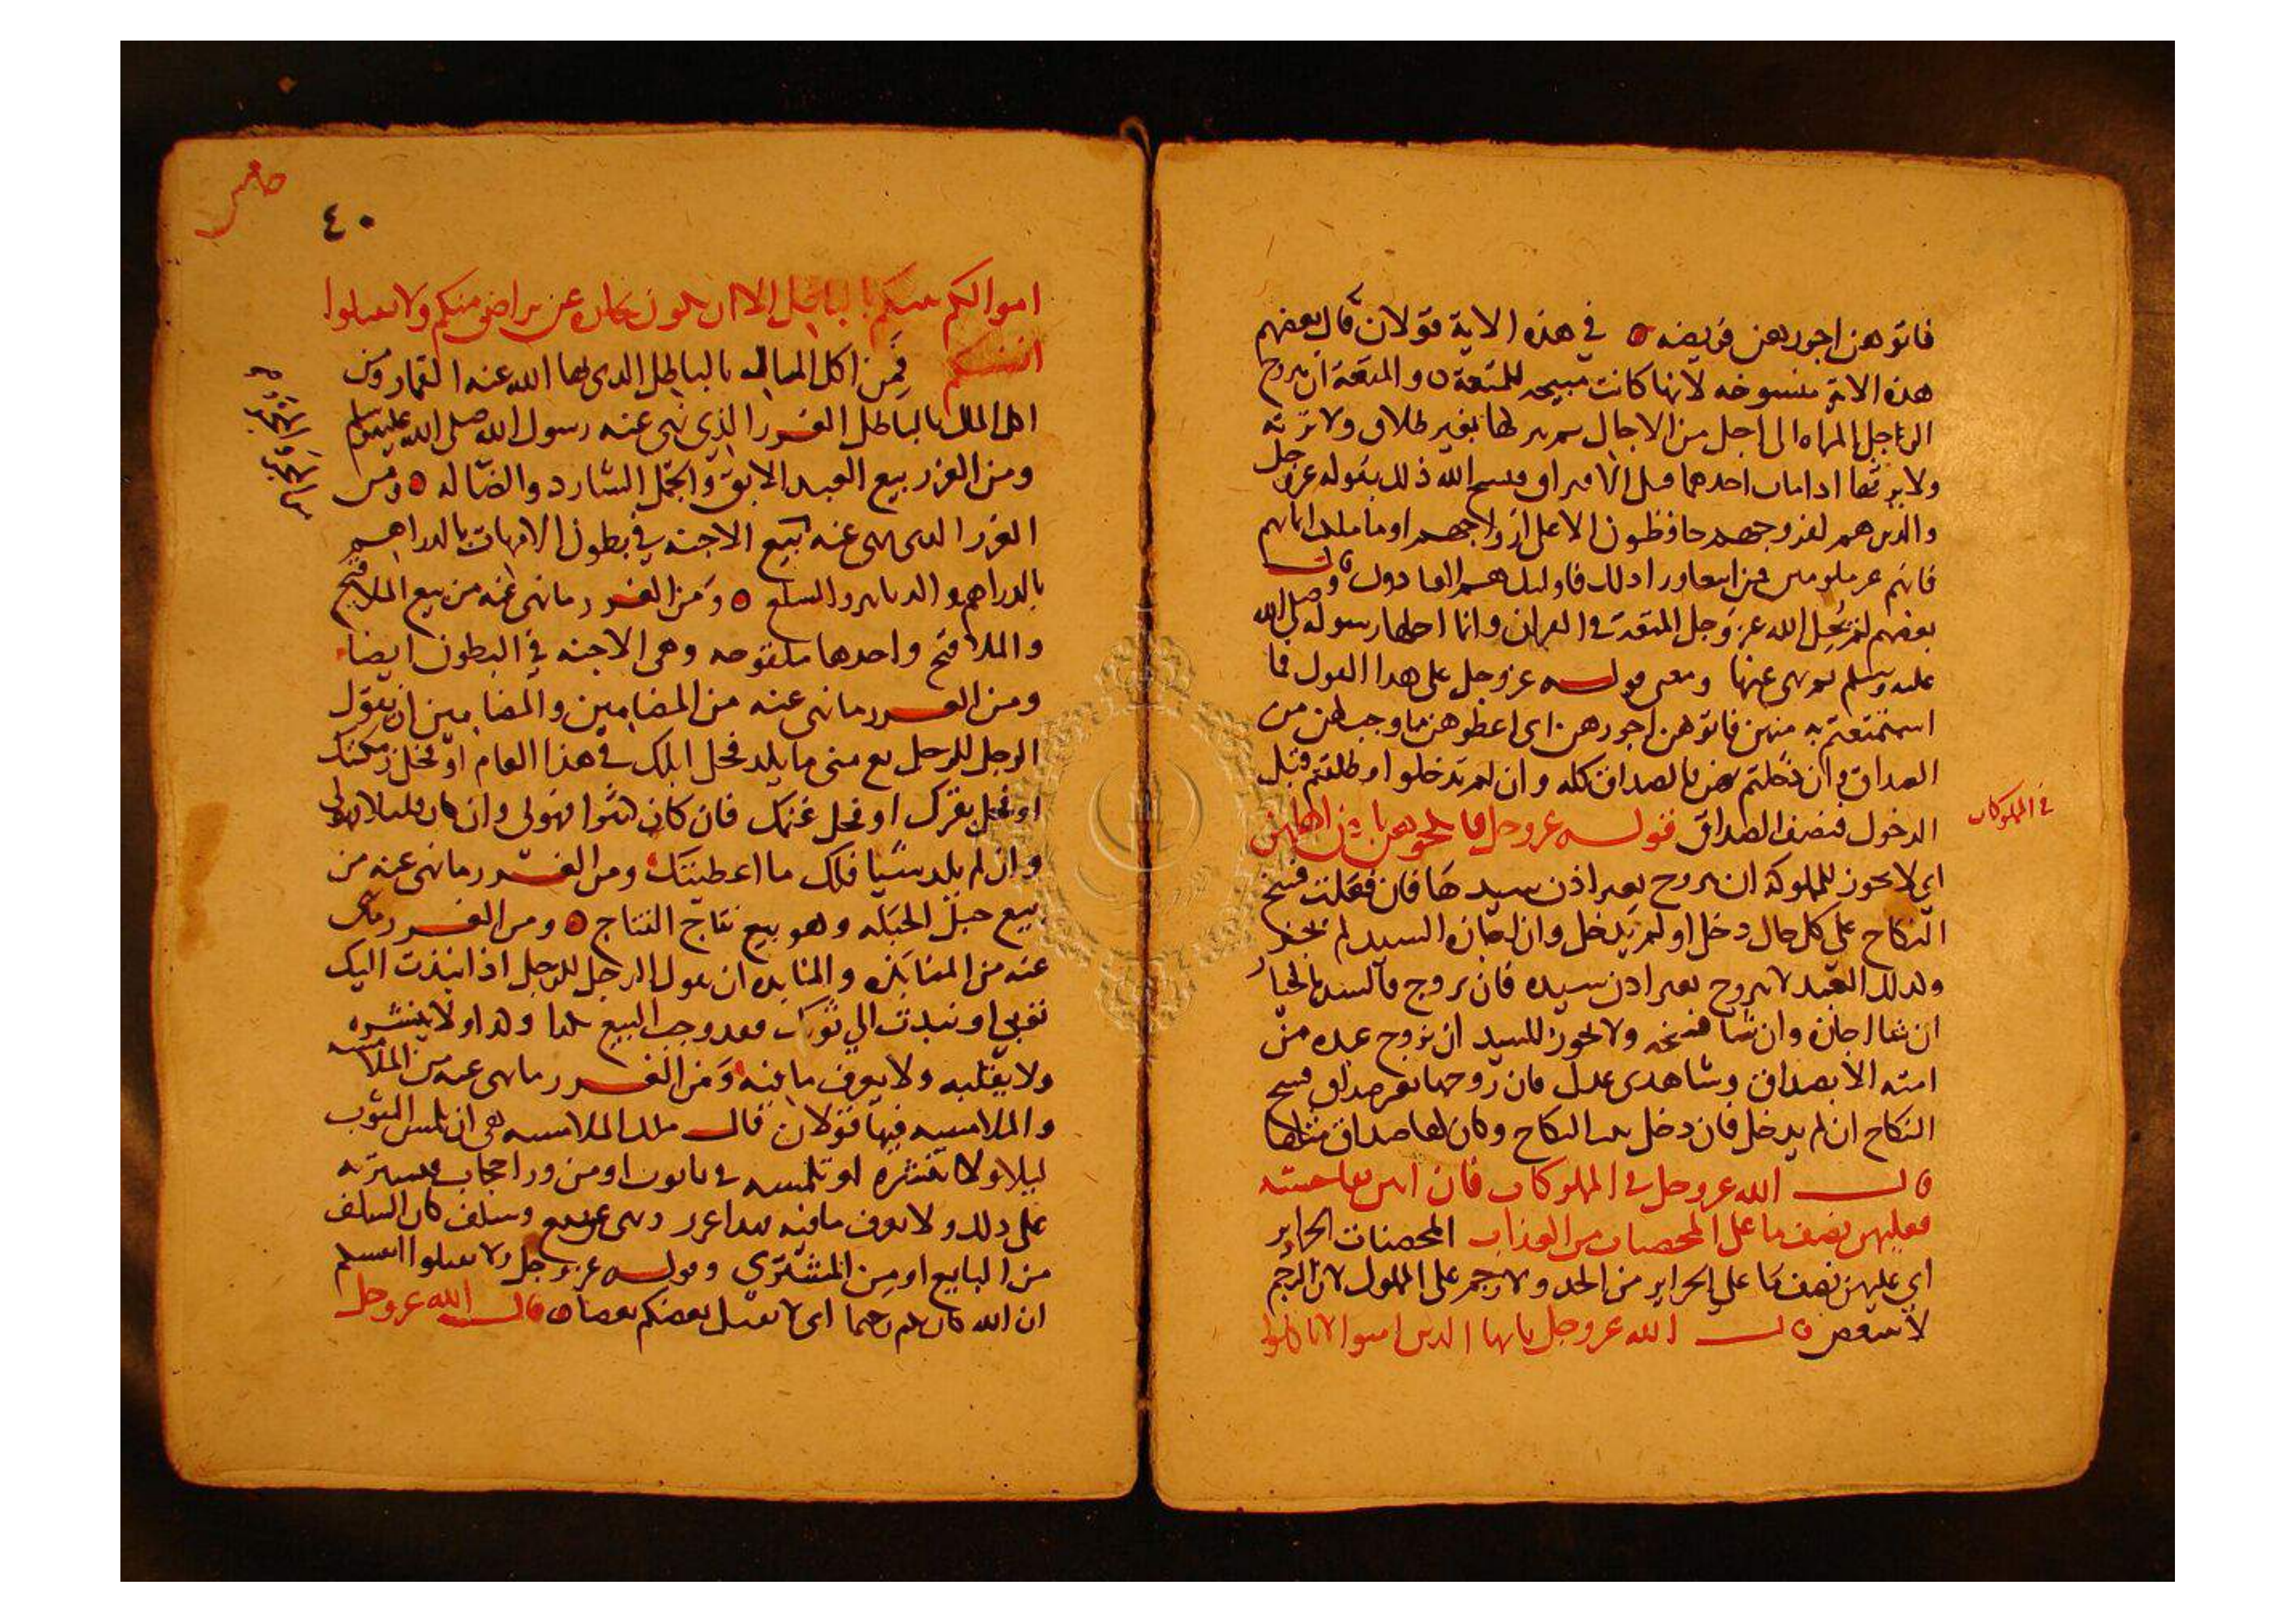 فاتوهن اجورهن فريضه ○ في هذه الاية قولان قال بعضهم
هذه الاية منسوخه لانها كانت مبيحه للمتعة ○ والمتعة ان يتزوج
الرجل المراه الى اجل من الاجال ثم يتركها بغير طلاق ولا ترثه
ولا يرثها اذا مات احدهما قبل الافتراق فنسخ الله ذلك بقوله عز وجل
والذين هم لفروجهم حافظون الا على ازواجهم او ما ملكت ايمانهم
فانهم غير ملومين فمن ابتغا ورا ذلك فاوليك هم العادون وقال
بعضهم لم يحل الله عز وجل المتعة في القران وانما احلها رسوله صلى الله
عليه وسلم ثم نهى عنها ومعنى قوله عز وجل على هذا القول فما
استمتعتم به منهن فاتوهن اجورهن اى اعطوهن ما وجب لهن من
الصداق وان دخلتم بهن بالصداق كله وان لم تدخلوا وطلقتم قبل
الدخول فنصف الصداق قوله عز وجل فانكحوهن باذن اهلهن
في المملوكات
اي لا يجوز للمملوكة ان تتزوج بغير اذن سيدها فان فعلت فسخ
النكاح علي كل حال دخل او لم يدخل وان اجازه السيد لم يجز
وكذلك العبد لا يتزوج بغير اذن سيده فان تزوج فالسيد بالخيار
ان شا اجازه وان شا فسخه ولا يجوز للسيد ان يزوج عبده من
امته الا بصداق وشاهدى عدل فان زوجها بغير صداق فسخ
النكاح ان لم يدخل فان دخل ثبت النكاح وكان لها صداق مثلها
قال الله عز وجل في المملوكات فان اتين بفاحشه
فعليهن نصف ما على المحصنات من العذاب المحصنات الحراير
اي عليهن نصف ما على الحراير من الحد ولا رجم على المملوك لان الرجم
لا يتبعض قال الله عز وجل يايها الذين امنوا لا تاكلوا
٤٠
اموالكم بينكم بالباطل الا ان تكون تجارة عن تراض منكم ولا تقتلوا
انفسكم فمن اكل المال بالباطل الذى نها الله عنه القمار ومن
اكل المال بالباطل الغرر الذي نهى عنه رسول الله صلى الله عليه وسلم
ومن الغرر بيع العبد الابق والجمل الشارد والضاله ○ ومن
الغرر الذى نهى عنه بيع الاجنه في بطون الامهات بالدراهم
بالدراهم والدنانير والسلع ○ ومن الغرر ما نهى عنه من بيع الملاقيح
والملاقح واحدها ملقوحه وهى الاجنه في البطون ايضا
ومن الغرر ما نهى عنه من المضامين والمضامين ان يقول
الرجل للرجل بع منى ما يلد فحل ابلك في هذا العام او فحل رمكتك
او فحل بقرك او فحل غنمك فان كان كثيرا فهو لى وان كان قليلا فهو لى
وان لم يلد شيا فلك ما اعطيتك ومن الغرر ما نهى عنه من
بيع حبل الحبله وهو بيع نتاج النتاج ○ ومن الغرر ما نهى
عنه من المنابذه والمنابذه ان يقول الرجل للرجل اذا نبذت اليك
ثوبي او نبذت الي ثوبك فقد وجب البيع بكذا وكذا ولا ينشره
ولا يقلبه ولا يعرف ما فيه ومن الغرر ما نهى عنه من الملامسه
والملامسه فيها قولان قال ملك الملامسه هى ان يلمس الثوب
ليلا ولا ينشره او تلمسه في تابوت او من ورا حجاب فيشتريه
على ذلك ولا يعرف ما فيه فهذا غرر ونهى عن بيع وسلف كان السلف
من البايع او من المشترى وقوله عز وجل ولا تقتلوا انفسكم
ان الله كان بكم رحيما اى لا يقتل بعضكم بعضا ○ قال الله عز وجل